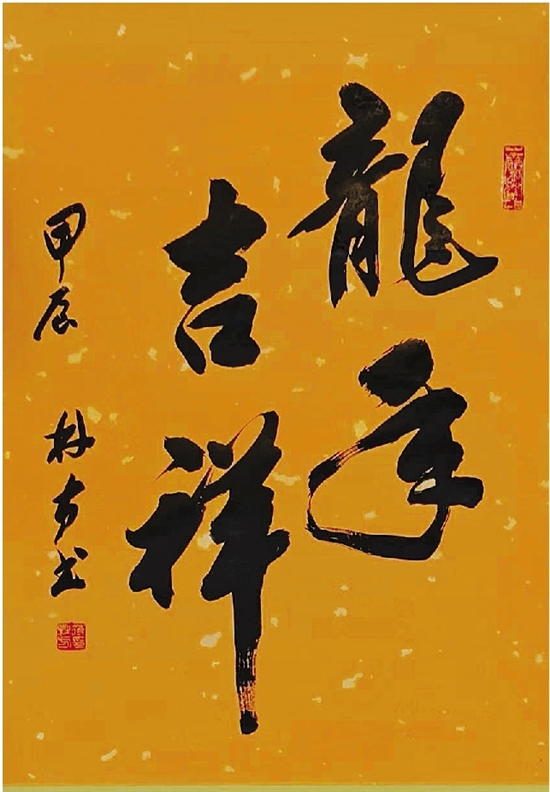 龍年
吉祥
甲辰 林方书